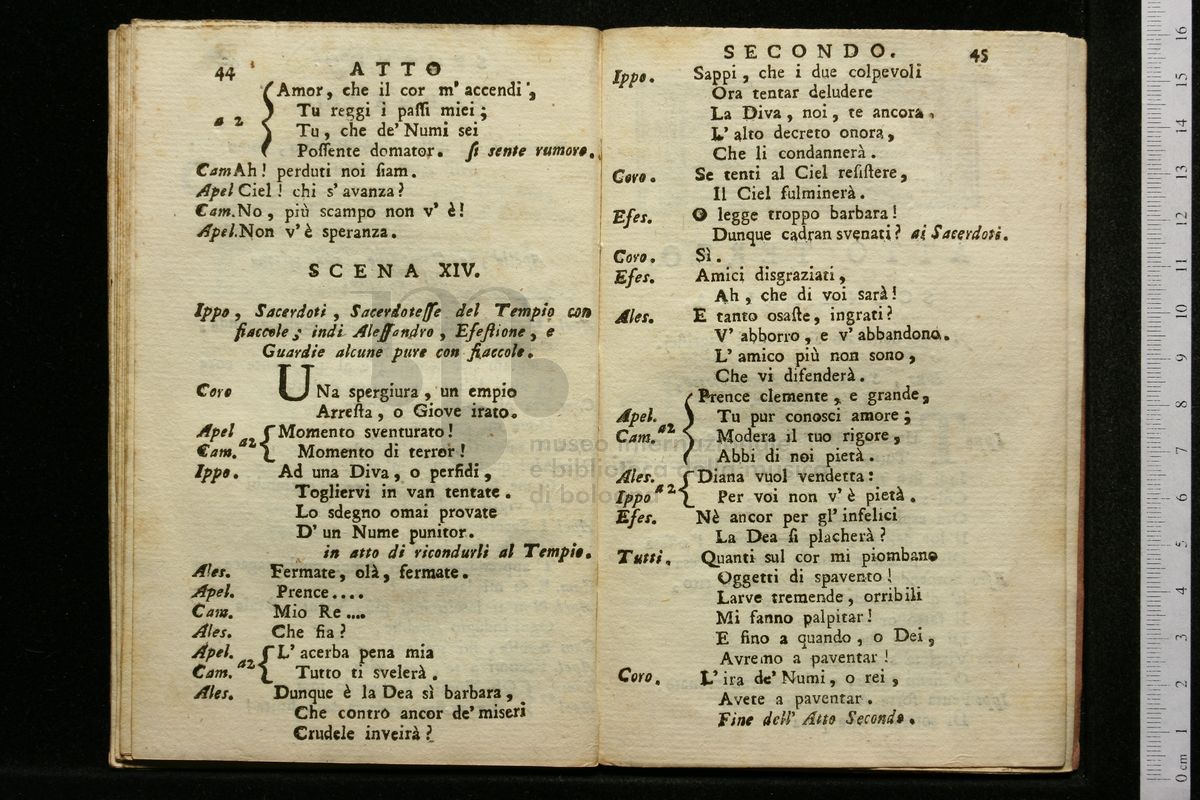 44 ATTO
Amor, che il cor m' accendi,
Tu reggi i passi miei;
a 2
Tu, che de' Numi sei
Possente domator. si sente rumore.
Cam Ah! perduti noi siam.
Apel Ciel! chi s' avanza?
Cam. No, più scampo non v' è!
Apel. Non v' è speranza.
SCENA XIV.
Ippo, Sacerdoti, Sacerdotesse del Tempio con
fiaccole; indi Alessandro, Efestione, e
Guardie alcune pure con fiaccole.
Coro UNa spergiura, un empio
Arresta, o Giove irato.
Apel Momento sventurato!
a2
Cam. Momento di terror!
Ippo. Ad una Diva, o perfidi,
Togliervi in van tentate.
Lo sdegno omai provate
D' un Nume punitor.
in atto di ricondurli al Tempio.
Ales. Fermate, olà, fermate.
Apel. Prence....
Cam. Mio Re....
Ales. Che fia?
Apel. L' acerba pena mia
a2
Cam. Tutto ti svelerà.
Ales. Dunque è la Dea sì barbara,
Che contro ancor de' miseri
Crudele inveirà?
SECONDO. 45
Ippo. Sappi, che i due colpevoli
Ora tentar deludere
La Diva, noi, te ancora,
L' alto decreto onora,
Che li condannerà.
Coro. Se tenti al Ciel resistere,
Il Ciel fulminerà.
Efes. O legge troppo barbara!
Dunque cadran svenati? ai Sacerdoti.
Coro. Sì.
Efes. Amici disgraziati,
Ah, che di voi sarà!
Ales. E tanto osaste, ingrati?
V' abborro, e v' abbandono.
L' amico più non sono,
Che vi difenderà.
Prence clemente, e grande,
Apel. Tu pur conosci amore;
a2
Cam. Modera il tuo rigore,
Abbi di noi pietà.
Ales. Diana vuol vendetta:
a2
Ippo Per voi non v' è pietà.
Efes. Nè ancor per gl' infelici
La Dea si placherà?
Tutti. Quanti sul cor mi piombano
Oggetti di spavento!
Larve tremende, orribili
Mi fanno palpitar!
E fino a quando, o Dei,
Avremo a paventar!
Coro. L' ira de' Numi, o rei,
Avete a paventar.
Fine dell' Atto Secondo.
museo internazionale
e biblioteca della musica
di bologna
0 cm 1 2 3 4 5 6 7 8 9 10 11 12 13 14 15 16